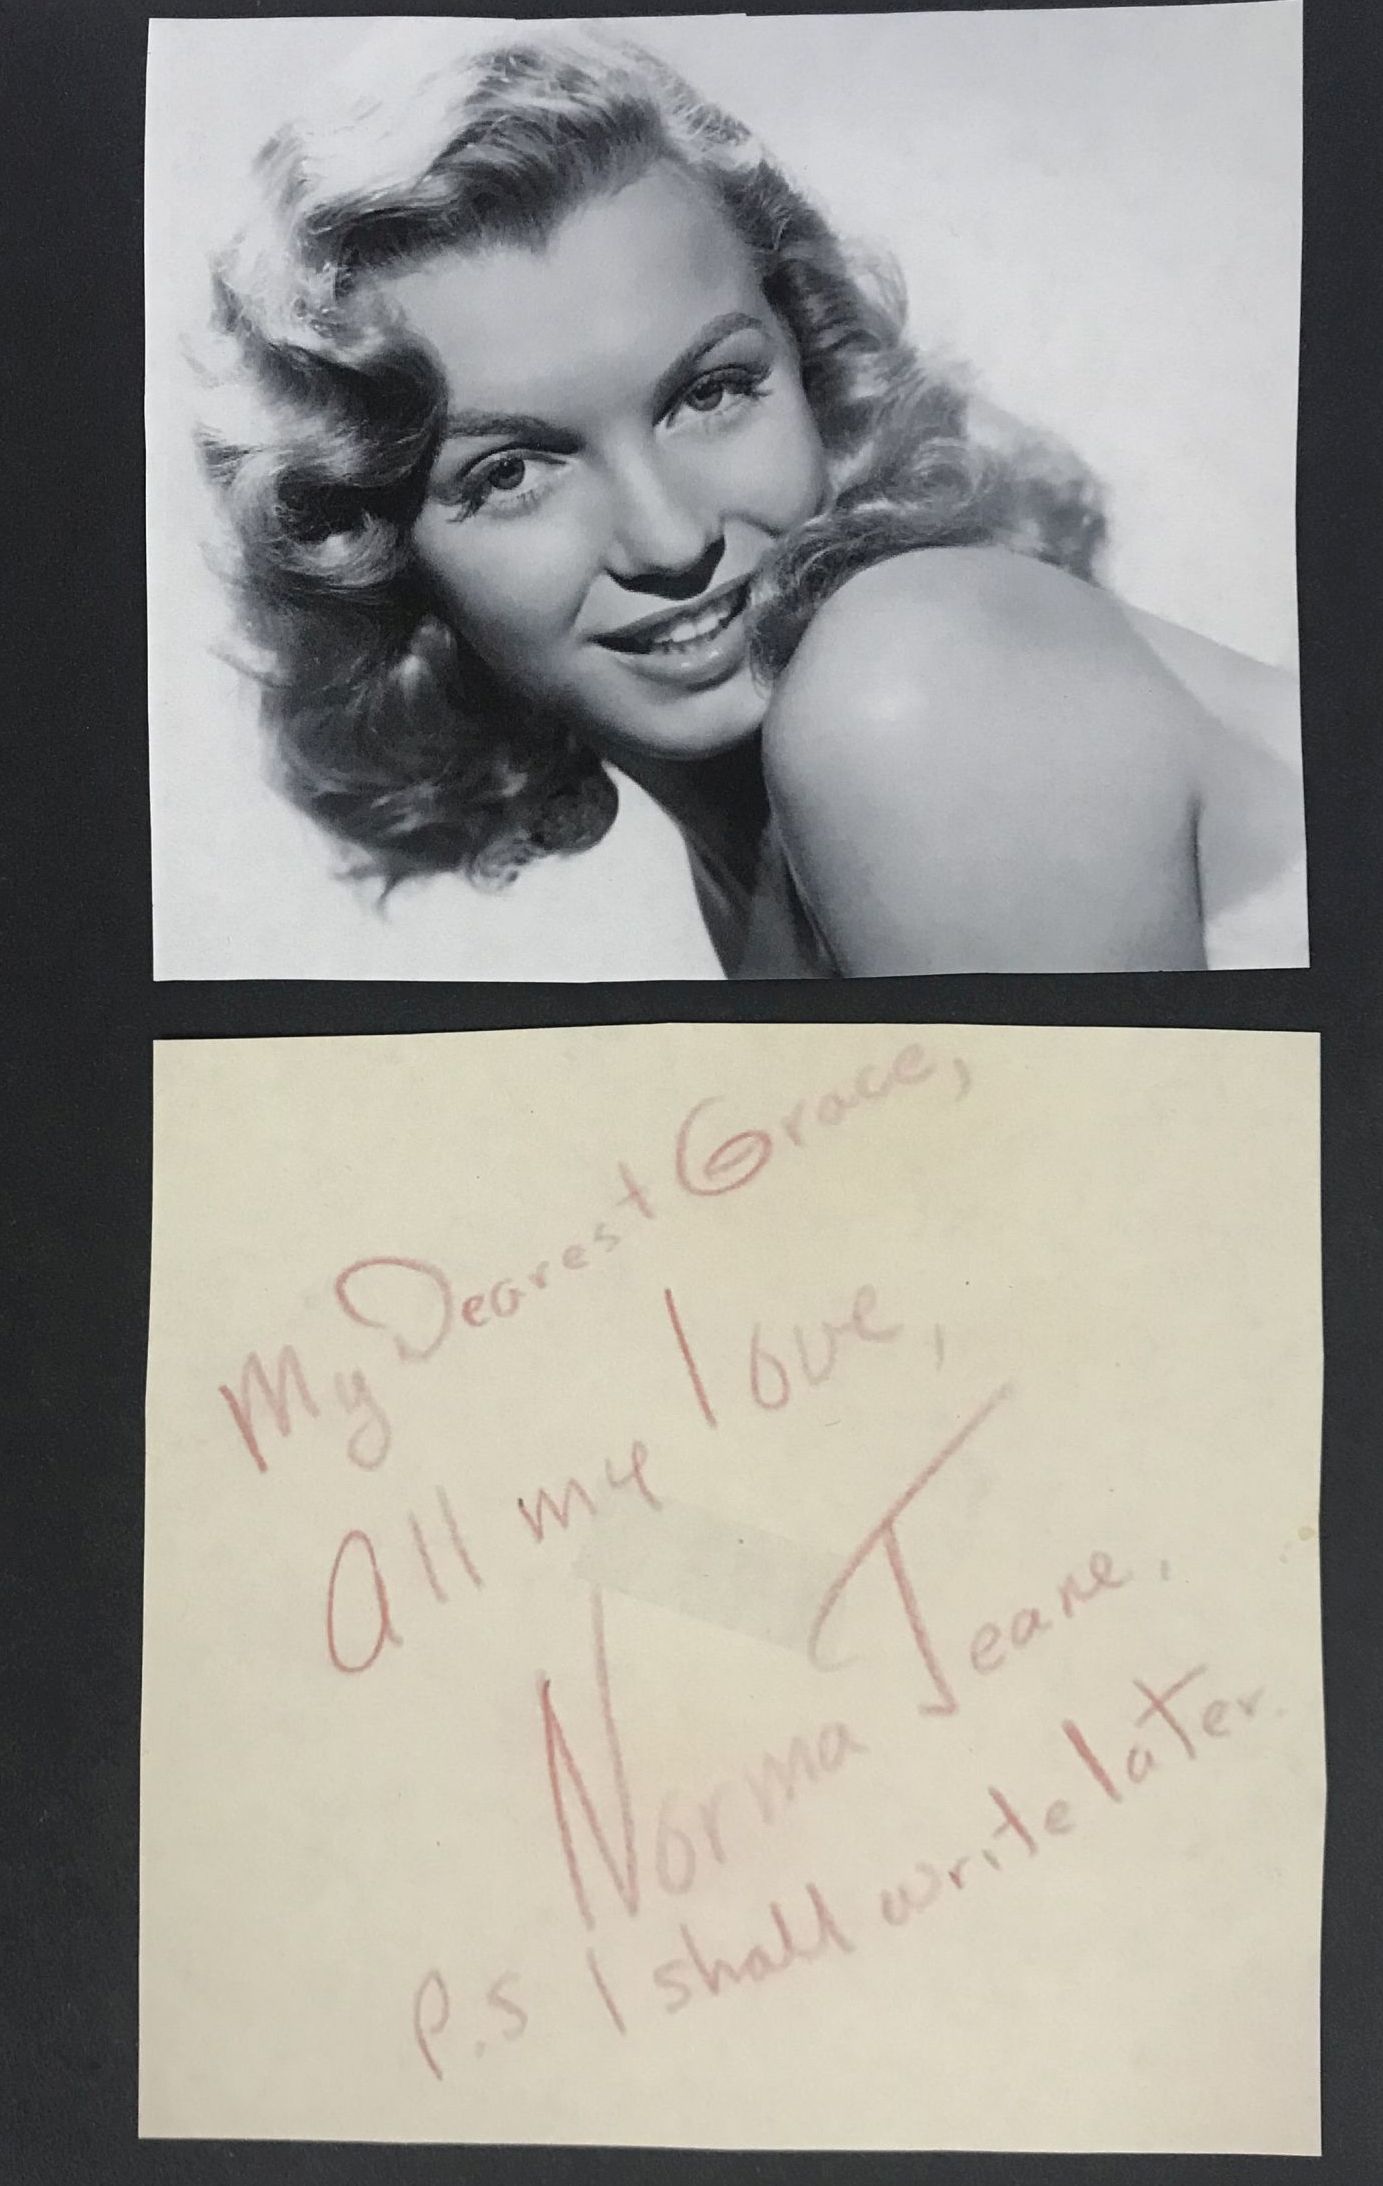 My Dearest Grace,
all my love,
Norma Jeane.
P.S I shall write later.